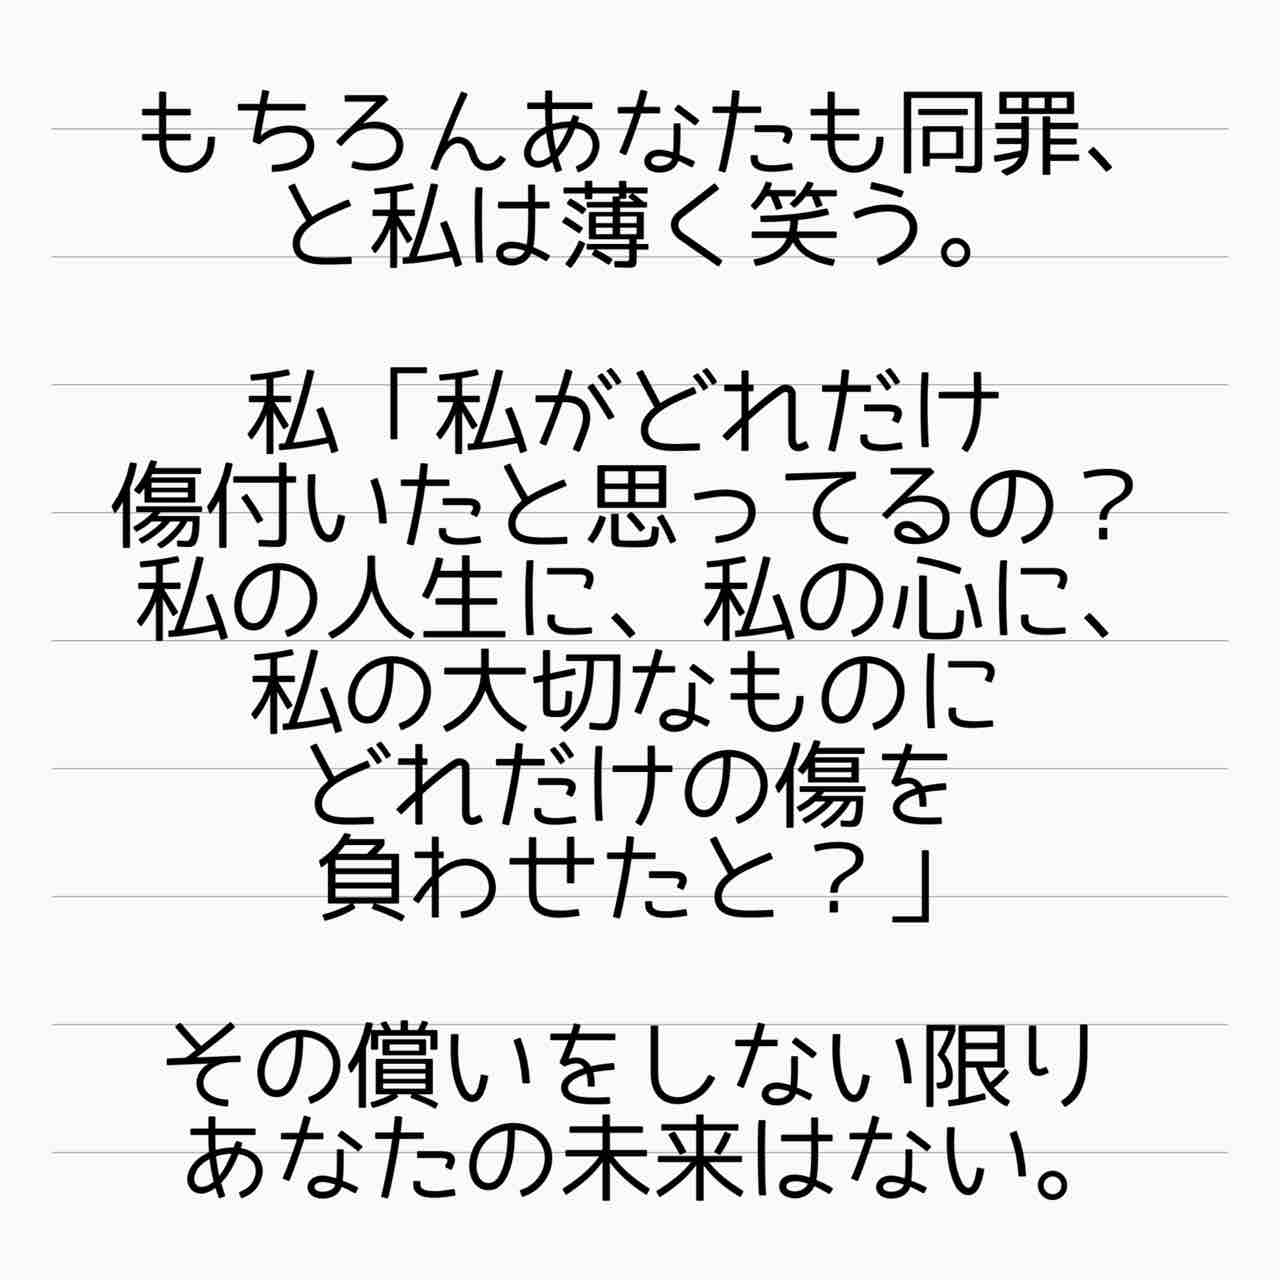 もちろんあなたも同罪、
と私は薄く笑う。
私「私がどれだけ
傷付いたと思ってるの？
私の人生に、私の心に、
私の大切なものに
どれだけの傷を
負わせたと？」
その償いをしない限り
あなたの未来はない。